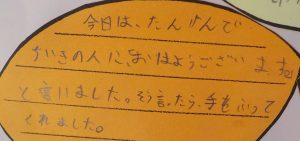 今日は、たんけんで
ちいきの人に、おはようございます
と言いました。そう言ったら、手をふって
くれました。